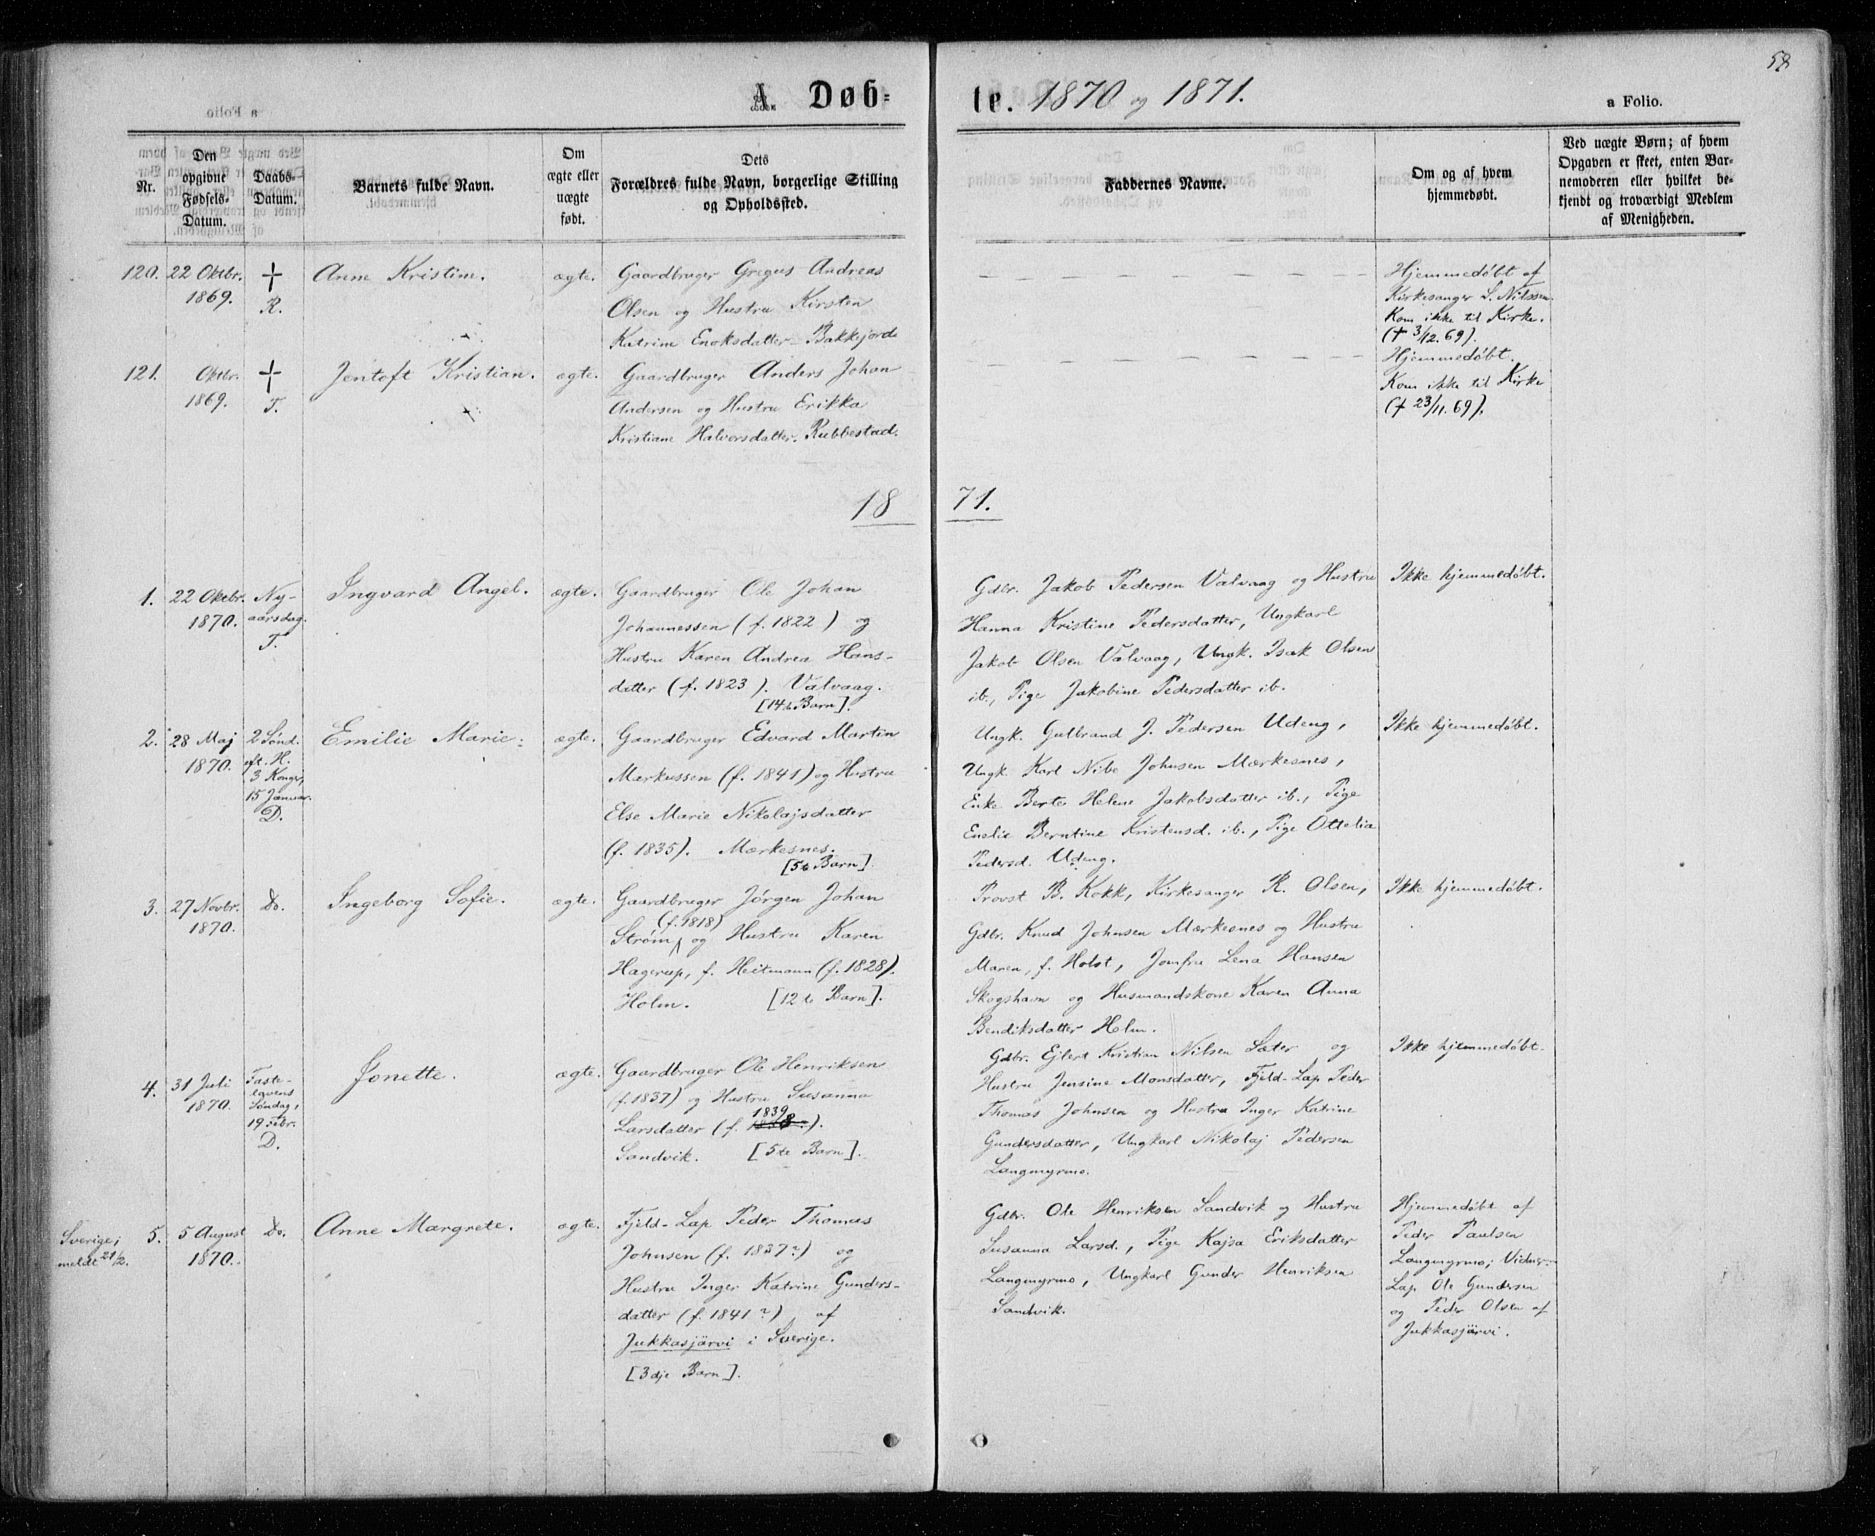 58
A. Døb-
te. 1870 og 1871.
a Folio.
a Folio.
Nr.
Den
opgivne
Fødsels-
Datum.
Daabs-
Datum.
Barnets fulde Navn.
Om
ægte eller
uægte
født.
Dets
Forældres fulde Navn, borgerlige Stilling
og Opholdssted.
Faddernes Navne.
Om og af hvem
hjemmedøbt.
Ved uægte Børn; af hvem
Opgaven er skeet, enten Bar-
nemoderen eller hvilket be-
kjendt og troværdigt Medlem
af Menigheden.
120.
22 Oktbr.
1869.
†
R.
Anne Kristine.
ægte.
Gaardbruger Gregus Andreas
Olsen og Hustru Kirsten
Katrine Enoksdatter Bakkejorde
Hjemmedøbt af
Kirkesanger L. Nilssen.
Kom ikke til Kirke.
(† 3/12.69).
121.
Oktbr.
1869.
†
T.
Jentoft Kristian.
ægte.
Gaardbruger Anders Johan
Andersen og Hustru Erikka
Kristiane Halvorsdatter. Rubbestad.
Hjemmedøbt.
Kom ikke til Kirke
(† 23/11.69).
18 71.
1.
22 Oktbr.
1870.
Ny-
aarsdag.
T.
Ingvard Angel.
ægte.
Gaardbruger Ole Johan
Johannessen (f. 1822) og
Hustru Karen Andrea Hans-
datter (f. 1823). Valvaag.
[14de Barn].
Gdbr. Jakob Pedersen Valvaag og Hustru
Hanna Kristine Pedersdatter, Ungkarl
Jakob Olsen Valvaag, Ungk. Isak Olsen
ib., Pige Jakobine Pedersdatter ib.
Ikke hjemmedøbt.
2.
28 Maj
1870.
2 Sønd.
eft. H.
3 Konger,
15 Januar.
D.
Emilie Marie.
ægte.
Gaardbruger Edvard Martin
Markussen (f. 1841) og Hustru
Else Marie Nikolajsdatter
(f. 1835). Mærkesnes.
[5te Barn].
Ungk. Gulbrand J. Pedersen Udeng,
Ungk. Karl Nibe Johnsen Mærkesnes,
Enke Berte Helene Jakobsdatter ib., Pige
Enelie Berntine Kristensd. ib., Pige Ottelia
Pedersd. Udeng.
Ikke hjemmedøbt.
3.
27 Novbr.
1870.
Do.
Ingeborg Sofie.
ægte.
Gaardbruger Jørgen Johan
(f. 1818)
Strøm og Hustru Karen
Hagerup, f. Heitmann (f. 1828).
Holm. [12te Barn].
Provst B. Kokk, Kirkesanger R. Olsen,
Gdbr. Knud Johnsen Mærkesnes og Hustru
Maren, f. Holst, Jomfru Lena Hansen
Skogshavn og Husmandskone Karen Anna
Bendiksdatter Holm.
Ikke hjemmedøbt.
4.
31 Juli
1870.
Faste-
lavens
Søndag,
19 Febr.
D.
Jonette.
ægte.
Gaardbruger Ole Henriksen
(f. 1837) og Hustru Susanna
1839
Larsdatter (f. 1838).
Sandvik. [5te Barn].
Gdbr. Ejlert Kristian Nilsen Sæter og
Hustru Jensine Monsdatter, Fjeld-Lap Peder
Thomas Johnsen og Hustru Inger Katrine
Gundersdatter, Ungkarl Nikolaj Pedersen
Langmyrmo.
Ikke hjemmedøbt.
Sverige;
meldt 21/2.
5.
5 August
1870.
Do.
Anne Margrete.
ægte.
Fjeld-Lap Peder Thomas
Johnsen (f. 1837?) og
Hustru Inger Katrine Gunders-
datter (f. 1841?) af
Jukkasjärvi i Sverige.
[3dje Barn].
Gdbr. Ole Henriksen Sandvik og Hustru
Susanna Larsd., Pige Kajsa Eriksdatter
Langmyrmo, Ungkarl Gunder Henriksen
Sandvik.
Hjemmedøbt af
Peder Paulsen
Langmyrmo; Vidner
Lap Ole Gundersen
og Peder Olsen af
Jukkasjärvi.